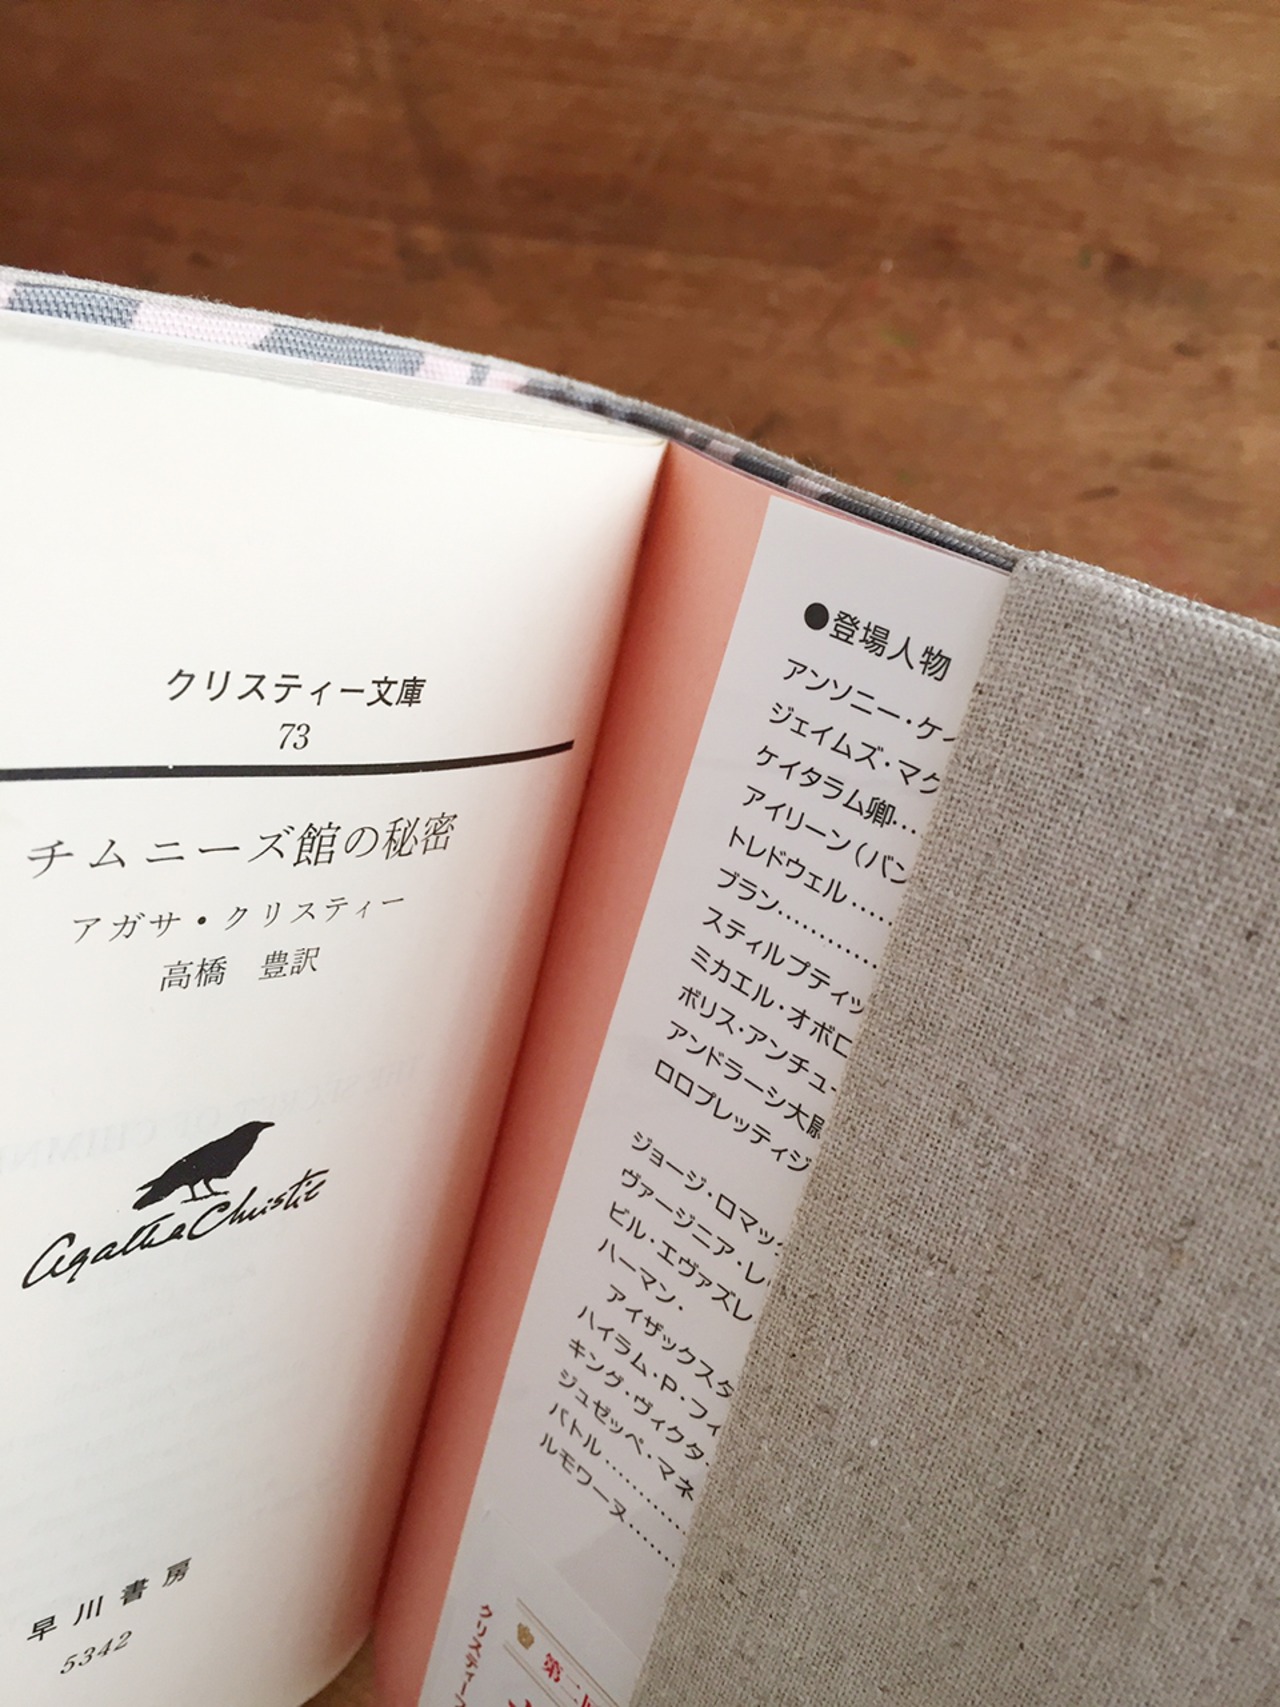 クリスティー文庫
73
チムニーズ館の秘密
アガサ・クリスティー
高橋 豊訳
Agatha Christie
早川書房
5342
●登場人物
アンソニー・ケイ
ジェイムズ・マク
ケイタラム卿…
アイリーン(バン
トレドウェル……
ブラン…………
スティルプティッ
ミカエル・オボロ
ボリス・アンチュ
アンドラーシ大尉
ロロプレッティジ
ジョージ・ロマッ
ヴァージニア・レ
ビル・エヴァズレ
ハーマン・
アイザックスタ
ハイラム・P・フィ
キング・ヴィクタ
ジュゼッペ・マネ
バトル…………
ルモワーヌ……
クリスティー
第二